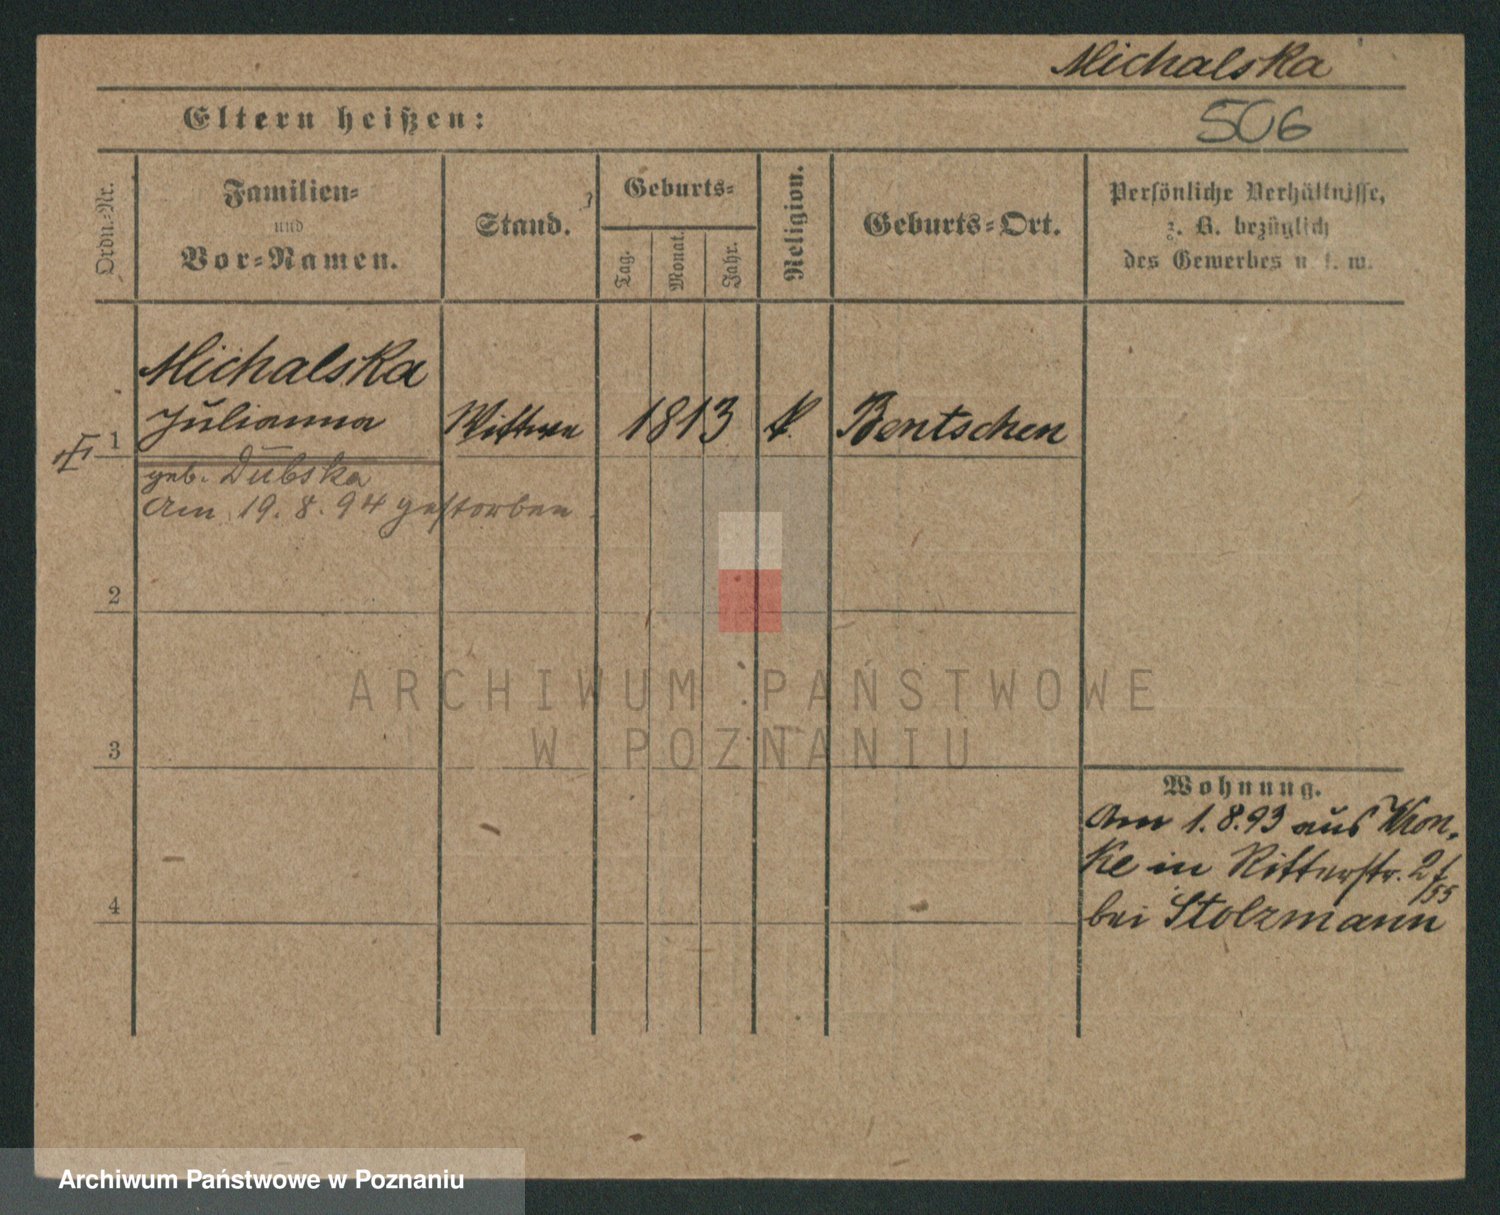 Michalska
Eltern heißen:
506
Ordn.-Nr.
Familien-
und
Vor-Namen.
Stand.
Geburts-
Tag.
Monat.
Jahr.
Religion.
Geburts-Ort.
Persönliche Verhältnisse,
z. B. bezüglich
des Gewerbes u. s. w.
Michalska
1 Julianna Wittwe 1813 k. Bentschen
geb. Dubska
Am 19.8.94 gestorben.
2
ARCHIWUM PAŃSTWOWE
W POZNANIU
3
Wohnung.
Am 1.8.93 aus Wron-
ke in Ritterstr. 2
bei Stolzmann
4
Archiwum Państwowe w Poznaniu